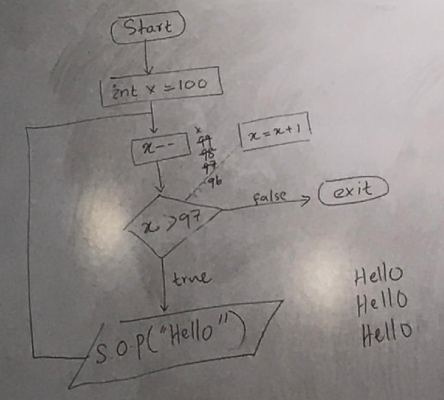 Start
int x = 100
x--
x
99
98
97
96
x = x+1
x >97
false
exit
true
S.O.P("Hello")
Hello
Hello
Hello